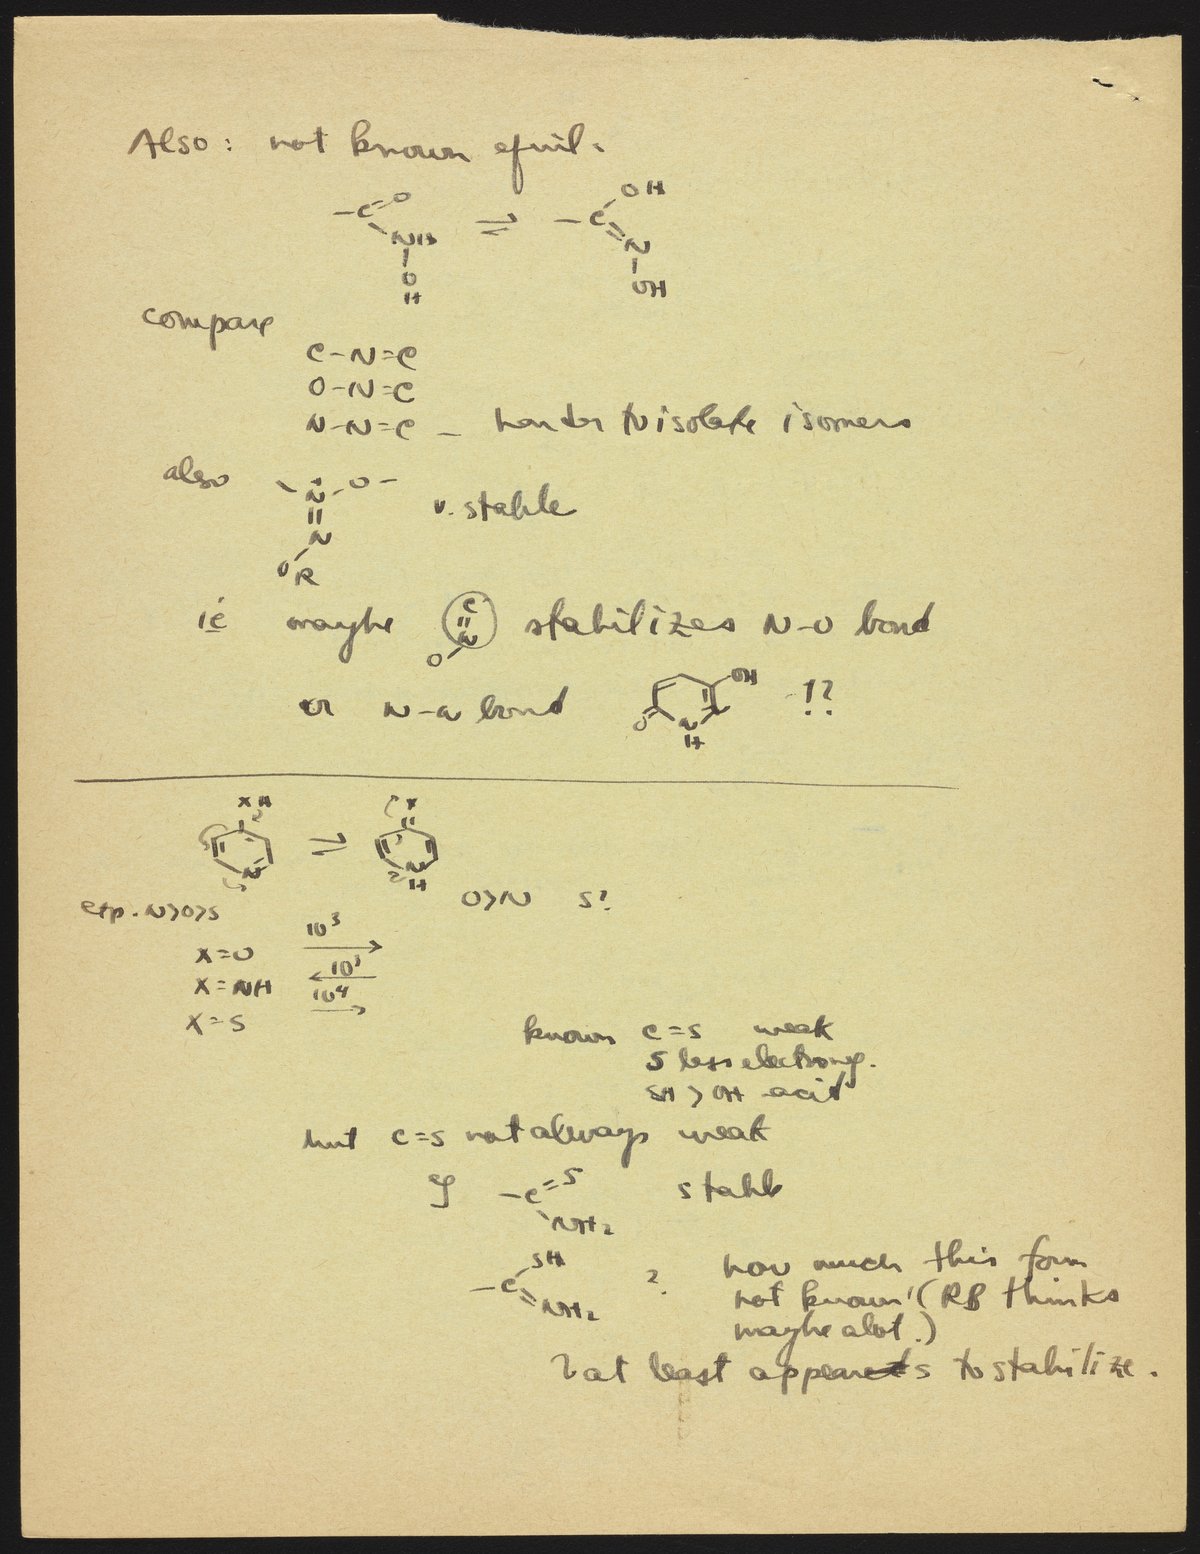 Also: not known equil.
-C=O ⇌ -C-OH
NH N
O OH
H
compare
C-N=C
O-N=C
N-N=C - harder to isolate isomers
also -N-O- v. stable
N
OR
ie maybe C=N stabilizes N-O bond
O
or N-N bond OH !?
O N N
H
XH X
⇌
N N
H
O>N S?
exp. N>O>S
X=O 10³ →
X=NH 10³ ←
X=S 10⁴ →
known C=S weak
S less electroneg.
SH > OH acid
but C=S not always weak
eg -C=S stable
NH₂
-C-SH ? how much this form
=NH₂ not known (RB thinks
maybe alot.)
? at least appears to stabilize.